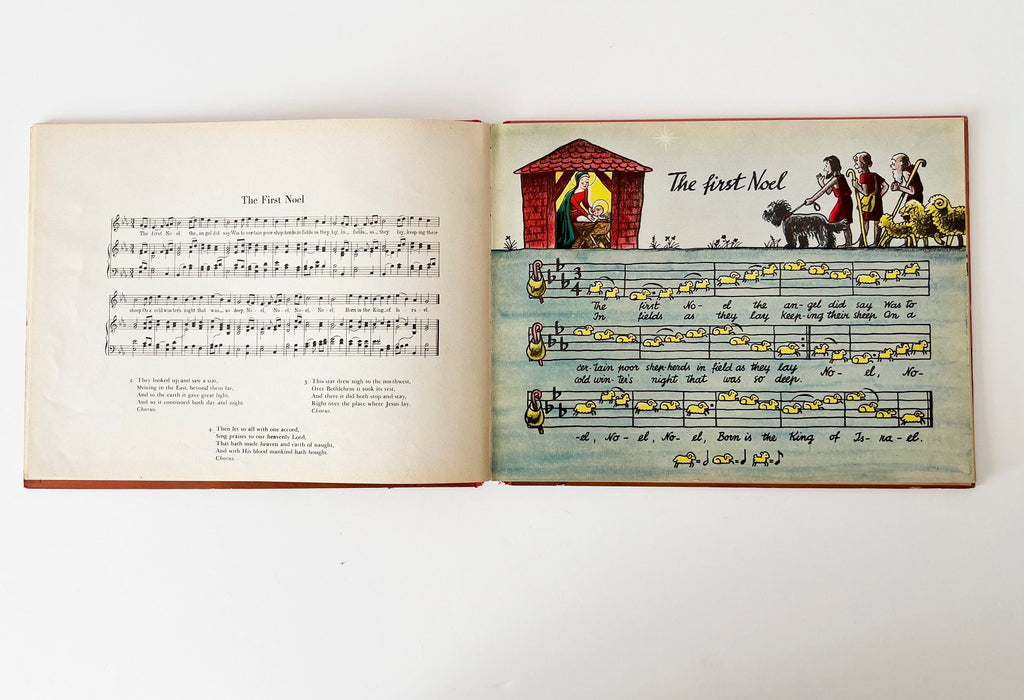 The First Noel
The first No - el the, an-gel did say Was to certain poor shepherds in fields as they lay, In fields as they lay, keep-ing their
sheep On a cold winter's night that was so deep, No - el, No - el, No - el, No - el, Born is the King of Is - ra - el.
2. They looked up and saw a star,
Shining in the East, beyond them far,
And to the earth it gave great light,
And so it continued both day and night.
Chorus.
3. This star drew nigh to the northwest,
Over Bethlehem it took its rest,
And there it did both stop and stay,
Right over the place where Jesus lay.
Chorus.
4. Then let us all with one accord,
Sing praises to our heavenly Lord,
That hath made heaven and earth of naught,
And with His blood mankind hath bought.
Chorus.
The first Noel
3
4
The first No - el the an - gel did say Was to
In fields as they lay keep-ing their sheep On a
cer-tain poor shep-herds in field as they lay No - el, No -
cold win-ter's night that was so deep.
-el, No - el, No - el, Born is the King of Is - ra - el.